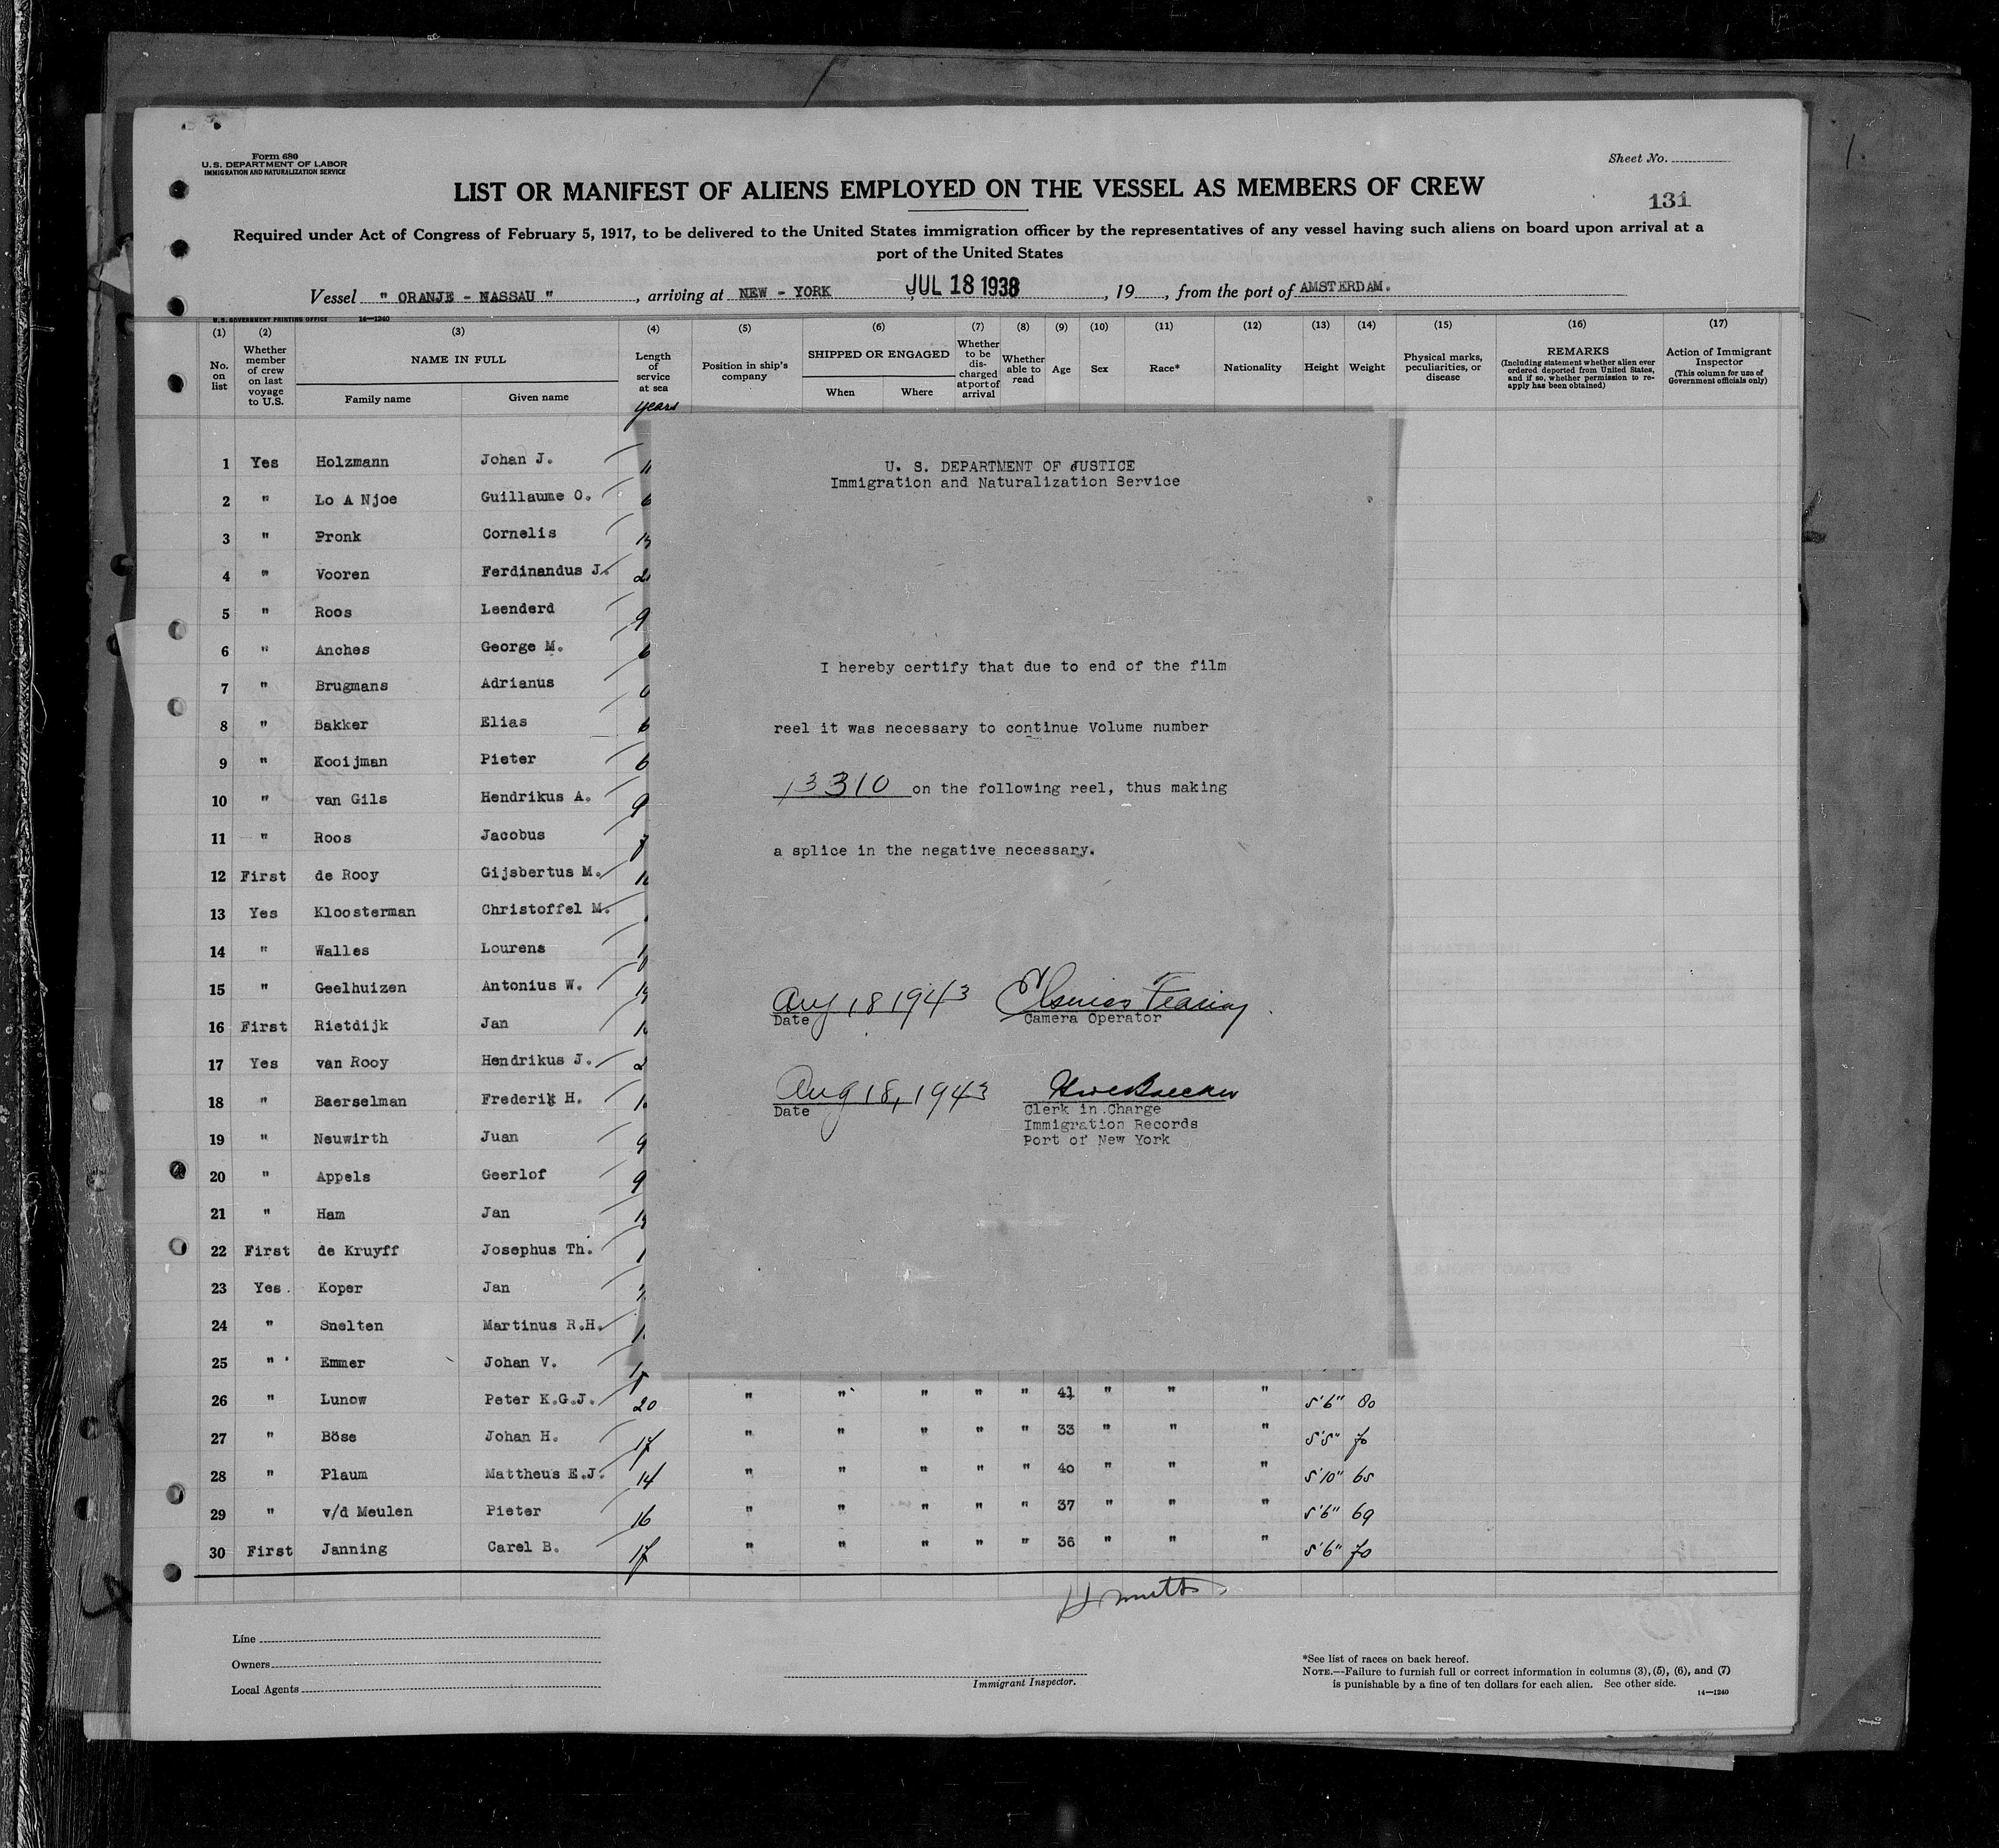 Form 680
U. S. DEPARTMENT OF LABOR
IMMIGRATION AND NATURALIZATION SERVICE
Sheet No.
LIST OR MANIFEST OF ALIENS EMPLOYED ON THE VESSEL AS MEMBERS OF CREW
131
Required under Act of Congress of February 5, 1917, to be delivered to the United States immigration officer by the representatives of any vessel having such aliens on board upon arrival at a
port of the United States
Vessel " ORANJE - NASSAU " , arriving at NEW - YORK JUL 18 1938 , 19 , from the port of AMSTERDAM.
U. S. GOVERNMENT PRINTING OFFICE 14—1240
(1) (2) (3) (4) (5) (6) (7) (8) (9) (10) (11) (12) (13) (14) (15) (16) (17)
No. on list
Whether member of crew on last voyage to U.S.
NAME IN FULL
Family name
Given name
Length of service at sea
years
Position in ship's company
SHIPPED OR ENGAGED
When
Where
Whether to be discharged at port of arrival
Whether able to read
Age
Sex
Race*
Nationality
Height
Weight
Physical marks, peculiarities, or disease
REMARKS
(Including statement whether alien ever ordered deported from United States, and if so, whether permission to reapply has been obtained)
Action of Immigrant Inspector
(This column for use of Government officials only)
1 Yes Holzmann Johan J.
2 " Lo A Njoe Guillaume O.
3 " Pronk Cornelis
4 " Vooren Ferdinandus J.
5 " Roos Leenderd 9
6 " Anches George M.
7 " Brugmans Adrianus
8 " Bakker Elias
9 " Kooijman Pieter
10 " van Gils Hendrikus A. 9
11 " Roos Jacobus
12 First de Rooy Gijsbertus M.
13 Yes Kloosterman Christoffel M.
14 " Walles Lourens
15 " Geelhuizen Antonius W.
16 First Rietdijk Jan
17 Yes van Rooy Hendrikus J.
18 " Baerselman Frederik H.
19 " Neuwirth Juan 9
20 " Appels Geerlof 9
21 " Ham Jan
22 First de Kruyff Josephus Th.
23 Yes. Koper Jan
24 " Snelten Martinus R.H.
25 " Emmer Johan V.
26 " Lunow Peter K.G.J. 20 " " " " " 41 " " " 5'6" 80
27 " Böse Johan H. 17 " " " " " 33 " " " 5'5" 70
28 " Plaum Mattheus E.J. 14 " " " " " 40 " " " 5'10" 65
29 " v/d Meulen Pieter 16 " " " " " 37 " " " 5'6" 69
30 First Janning Carel B. 17 " " " " " 36 " " " 5'6" 70
U. S. DEPARTMENT OF JUSTICE
Immigration and Naturalization Service
I hereby certify that due to end of the film
reel it was necessary to continue Volume number
13310 on the following reel, thus making
a splice in the negative necessary.
Aug 18 1943
Date Camera Operator
Aug 18, 1943
Date Clerk in Charge
Immigration Records
Port of New York
Line
Owners
Local Agents
Immigrant Inspector.
*See list of races on back hereof.
NOTE.—Failure to furnish full or correct information in columns (3), (5), (6), and (7)
is punishable by a fine of ten dollars for each alien. See other side.
14—1240